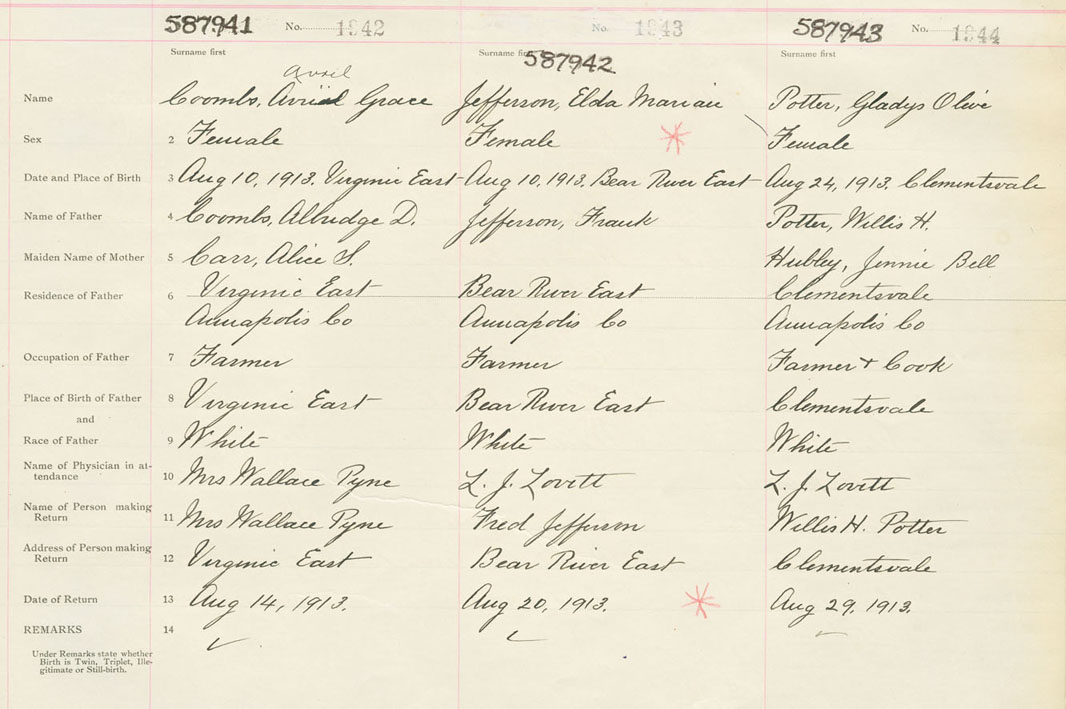 587941 No. 1942 No. 1943 587943 No. 1944
Surname first Surname first 587942 Surname first
Avril
Name Coombs, Grace Jefferson, Elda Marian Potter, Gladys Olive
Sex 2 Female Female Female
Date and Place of Birth 3 Aug 10, 1913. Virginic East Aug 10, 1913. Bear River East Aug 24, 1913. Clementsvale
Name of Father 4 Coombs, Albridge D. Jefferson, Frank Potter, Willis H.
Maiden Name of Mother 5 Carr, Alice S. Hubley, Jennie Bell
Residence of Father 6 Virginic East Bear River East Clementsvale
Annapolis Co Annapolis Co Annapolis Co
Occupation of Father 7 Farmer Farmer Farmer + Cook
Place of Birth of Father 8 Virginic East Bear River East Clementsvale
and
Race of Father 9 White White White
Name of Physician in at-
tendance 10 Mrs Wallace Pyne L. J. Lovett L. J. Lovett
Name of Person making
Return 11 Mrs Wallace Pyne Fred Jefferson Willis H. Potter
Address of Person making
Return 12 Virginic East Bear River East Clementsvale
Date of Return 13 Aug 14, 1913. Aug 20, 1913. Aug 29, 1913.
REMARKS 14
Under Remarks state whether
Birth is Twin, Triplet, Ille-
gitimate or Still-birth.